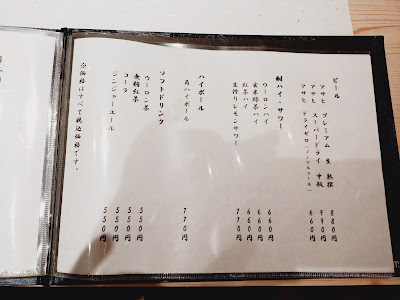 ビール
アサヒ プレミアム 生 熟撰 880円
アサヒ スーパードライ 中瓶 990円
アサヒ ドライゼロ(ノンアルコール) 660円
酎ハイ・サワー
ウーロンハイ 660円
玄米緑茶ハイ 660円
紅茶ハイ 660円
生搾りレモンサワー 770円
ハイボール
角ハイボール 770円
ソフトドリンク
ウーロン茶 550円
無糖紅茶 550円
コーラ 550円
ジンジャーエール 550円
※価格はすべて税込価格です。